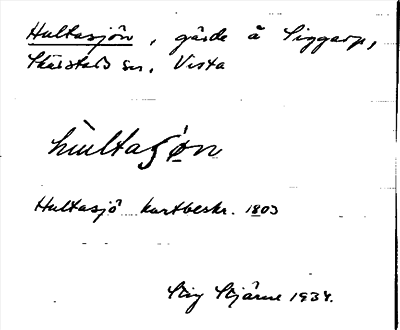 Hultasjön, gärde å Siggarp,
Skärstads sn. Vista
hùltasǫn
Hultasjö kartbeskr. 1803
Stig Stjärne 1934.